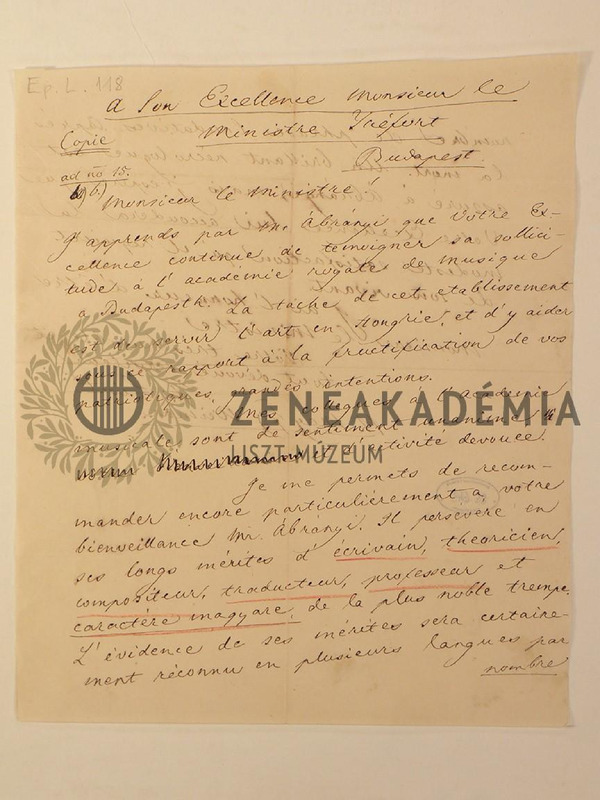 Ep. L. 118
A Son Excellence Monsieur le
Ministre Tréfort
Budapest
Copie
ad no 15.
b) Monsieur le Ministre!
J'apprends par Mr. Ábrányi que Votre Ex-
cellence continue de témoigner sa sollici-
tude à l'académie royale de musique
à Budapesth. La tâche de cet etablissement
est de servir l'art en Hongrie, et d'y aider
sous ce rapport à la fructification de vos
patriotiques, grandes intentions.
Mes collègues à l'Academie
musicale, sont de sentiment unanime
et d'activité devouée.
Je me permets de recom-
mander encore particulièrement a votre
bienveillance Mr. Ábrányi. Il persévère en
ses longs mérites d'écrivain, théoricien,
compositeur, traducteur, professeur et
caractère magyare, de la plus noble trempe.
L'évidence de ses mérites sera certaine-
ment réconnu en plusieurs langues par
nombre
ZENEAKADÉMIA
LISZT MÚZEUM